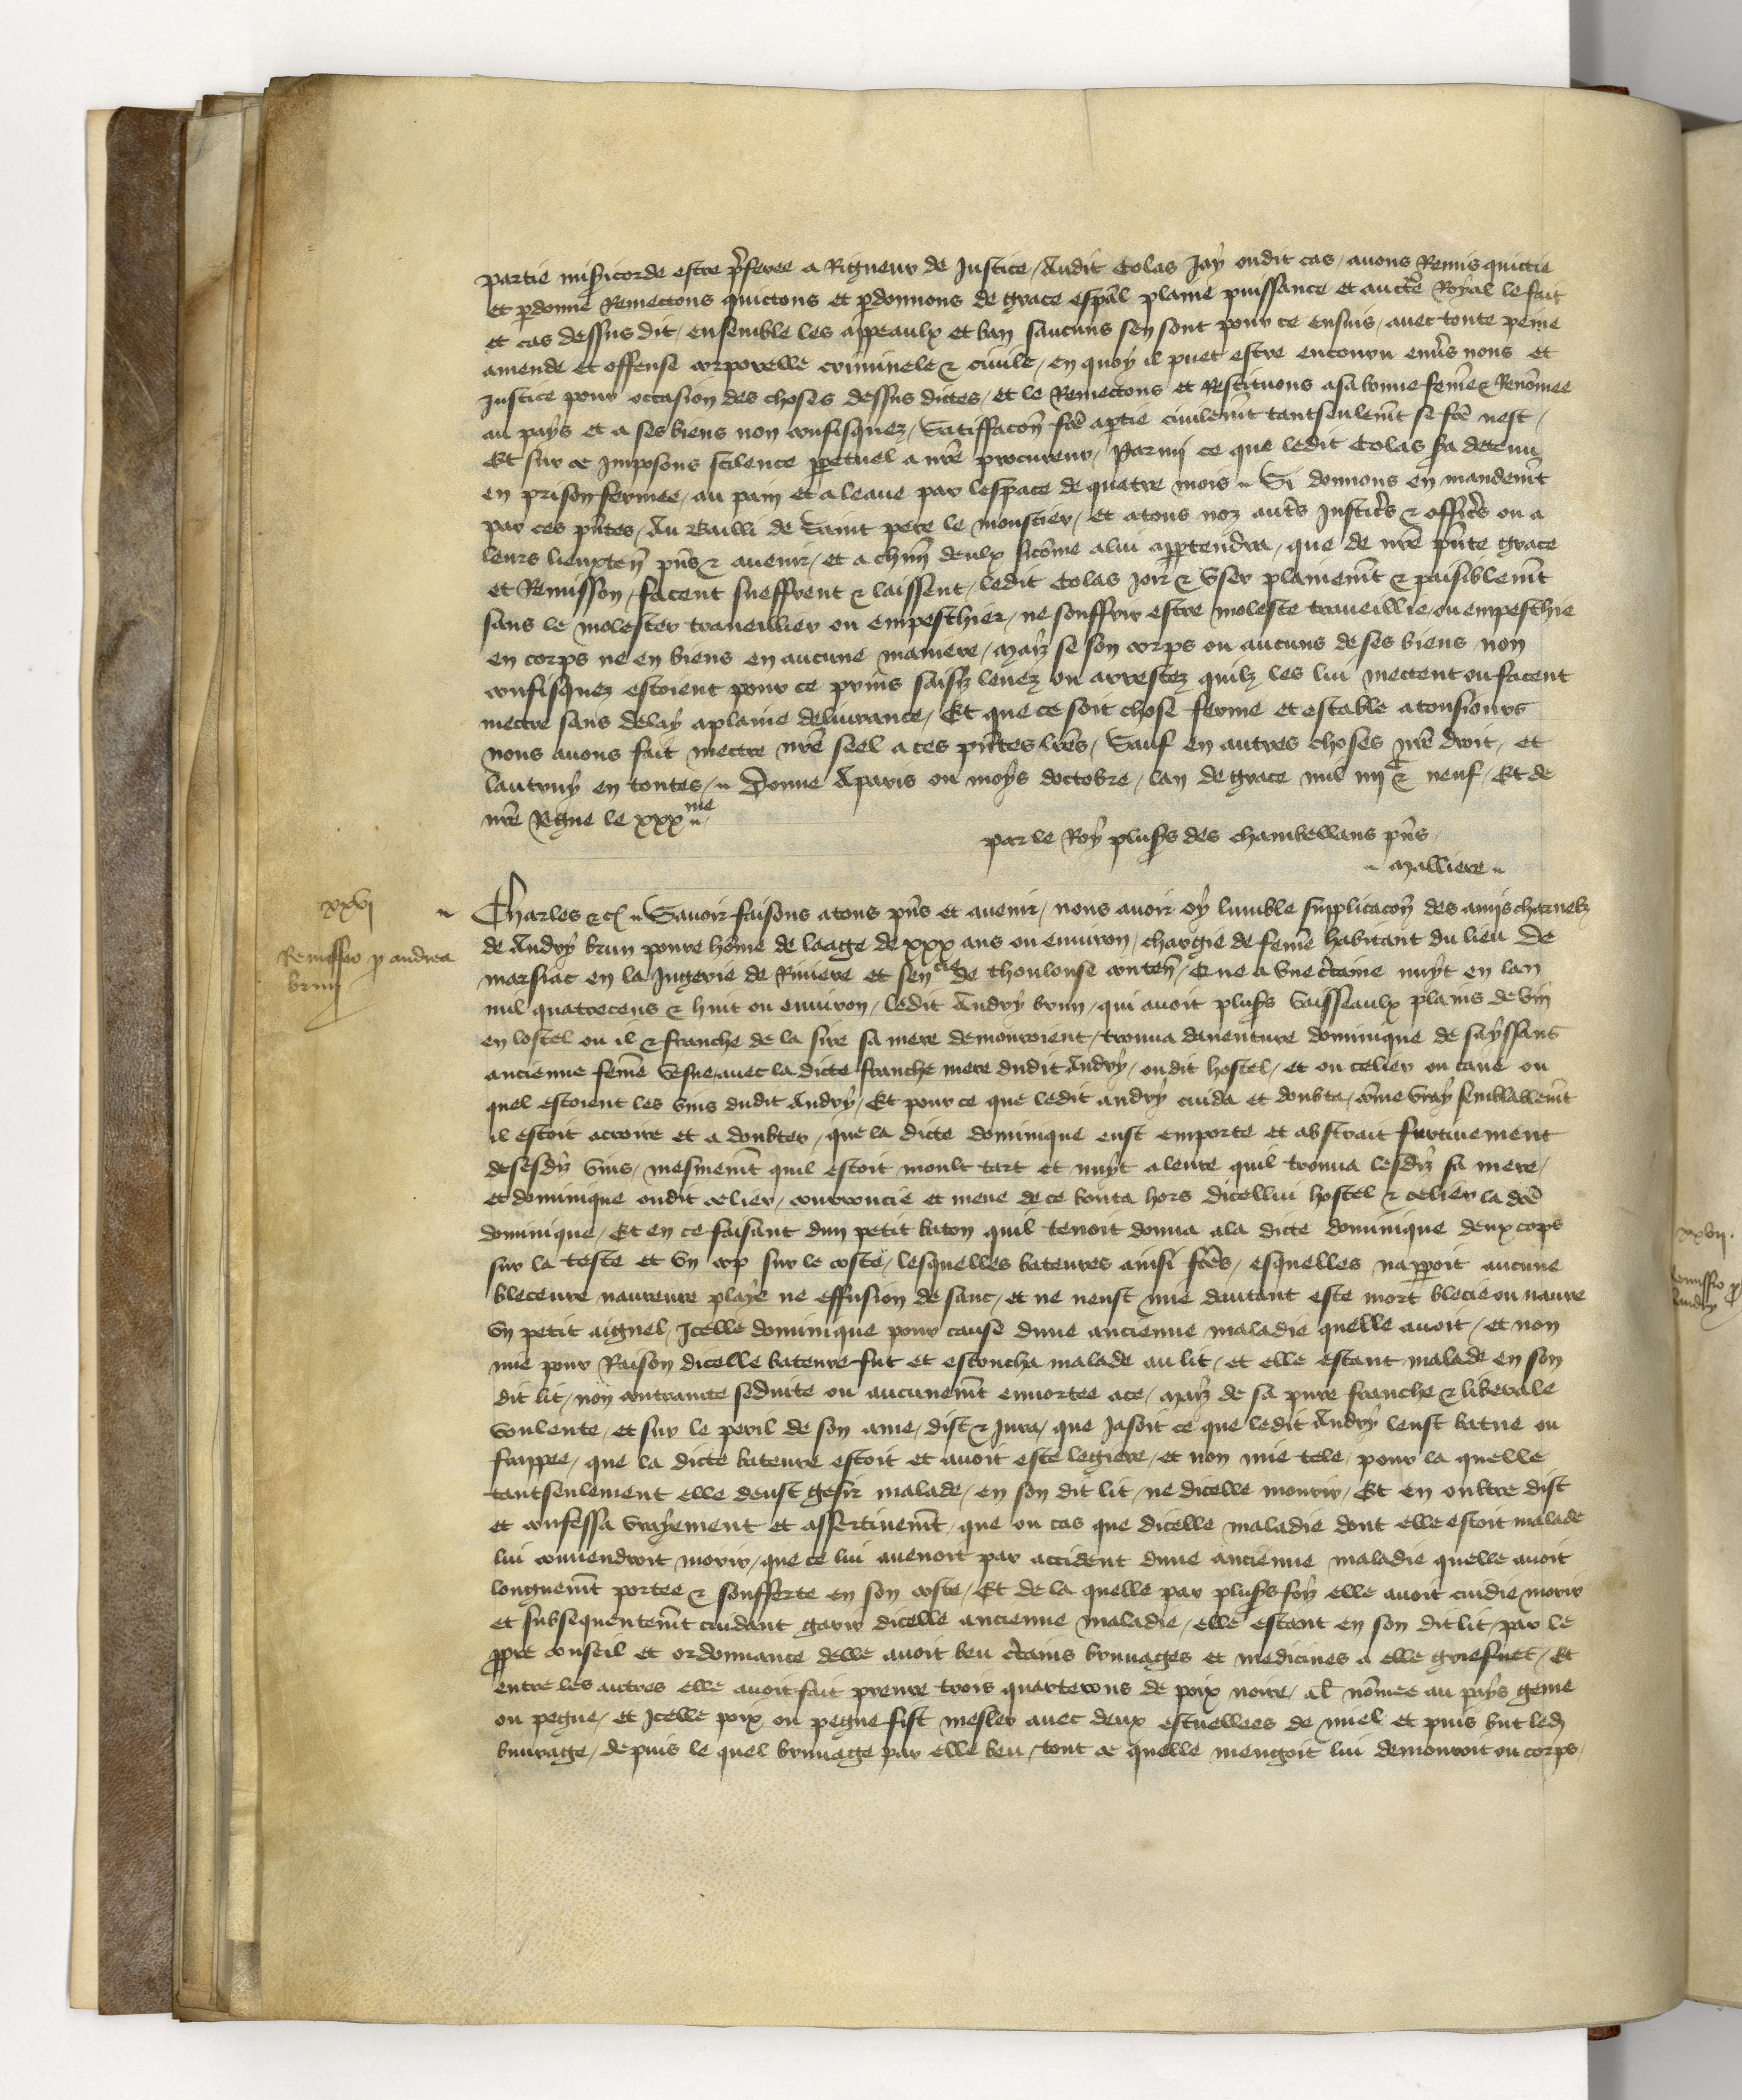 partie misericorde estre p̃feree a Rigueur de Justice / Audit Colas Jay ondit cas / auons Remis quictie
et p̱donne Remectons quictons et p̱donnons de grace esp̃al plaine puissance et aucte Royal le fait
et cas dessus dit / ensemble les appeaulx et ban saucuns sen sont pour ce ensuis / auec toute peine
amende et offense corporelle criminele & ciuile / en quoy il puet estre encouru enũs nous et
Justice pour occasion des choses dessus dictes / et le Remectons et Restituons a sa bonne feme & Renõmee
au pays et a ses biens non confisquez / Satiffacõn fcẽ a p̱tie ciuilemẽt tantseulemẽt se fcẽ nest /
Et sur ce Imposons scilence p̱petuel a nr̃e procureur / Parmi ce que ledit Colas sa detenu
en prison fermee / au pain et a leaue par lespace de quatre mois ~ Si donnons en mandemẽt
par ces pñtes / Au Bailli de Saint pere le moustier / et a tous noz autr̃s Justicr̃s & officr̃s ou a
leurs lieuxten̄ pñs & auenir / et a chũn deulx sicõme a lui app̱tendra / que de nr̃e pñte grace
et Remission / facent sueffrent & laissent / ledit Colas Joir & vser plainemẽt & paisiblemẽt
sans le molester traueillier ou empeschier / ne souffrir estre moleste traueillie ou empeschie
en corps ne en biens en aucune maniere / maiz se son corps ou aucuns de ses biens non
confisquez estoient pour ce prins saisiz leuez ou arrestez quilz les lui mectent ou facent
mectre sans delay a plaine deliurance / Et que ce soit chose ferme et estable a tousiours
nous auons fait mectre nr̃e seel a ces pñtes lr̃es / Sauf en autres choses nr̃e droit / et
lautruy en toutes / ~ Donne Aparis ou moys doctobre / lan de grace mil iiijc & neuf / Et de
nr̃e Regne le xxxme ~
par le Roy plus̃s des chambellans pñs
~ Malliere ~
xxvi
~ Charles &c ~ Sauoir faisons a tous pñs et auenir / nous auoir oy lumble supplicacõn des amis charnelz
Remissio p̱ andrea
brun
de Andry brun poure hõme de laage de xxx ans ou enuiron / chargie de feme habitant du lieu de
marsiac en la Jugerie de Riuiere et sencie de thoulouse conten̄ / Que a vne c̃taine nuyt en lan
mil quatrecens & huit ou enuiron / ledit Andry brun / qui auoit plus̃s vaisseaulx plains de vin
en lostel ou il & franche de la sire sa mere demouroient / trouua dauenture dominique de sayssans
ancienne feme vesue / auec la dicte franche mere dudit Andry / ondit hostel / et ou celier ou caue ou
quel estoient les vins dudit Andry / Et pour ce que ledit andry cuida et doubta / cõme vray semblablemẽt
il estoit accroire et a doubter / que la dicte dominique eust emporte et abstrait furtiuement
desesdiz vins / mesmemẽt quil estoit moult tart et nuyt a leure quil trouua lesdiz sa mere /
et dominique ondit celier / courroucie et meue de ce bouta hors dicellui hostel & celier la dcẽ
dominique / Et en ce faisant dun petit baton quil tenoit donna a la dicte dominique deux cops
sur la teste et vn cop sur le coste / lesquelles bateures ainsi fcẽs / esquelles napp̱oit aucune
bleceure naureure playe ne effusion de sanc / et ne neust mie dautant este mort blecie ou naure
vn petit aignel / Icelle dominique pour cause dune ancienne maladie quelle auoit / et non
mie pour Raison dicelle bateure fut et escoucha malade au lit / et elle estant malade en son
dit lit / non contrainte seduite ou aucunemẽt enuortee a ce / maiz de sa pure franche & liberale
voulente / et sur le peril de son ame / dist & Jura / que Jasoit ce que ledit Andry leust batue ou
frappee / que la dicte bateure estoit et auoit este legiere / et non mie tele / pour la quelle
tantseulement elle deust gesir malade / en son dit lit / ne dicelle mourir / Et en oultre dist
et confessa vrayement et assertiuemẽt / que ou cas que dicelle maladie dont elle estoit malade
lui conuendroit morir / que ce lui auenoit par accident dune ancienne maladie quelle auoit
longuemẽt portee & soufferte en son coste / Et de la quelle par plus̃s foiz elle auoit cuidie morir
et subsequentemẽt cuidant garir dicelle ancienne maladie / elle estant en son dit lit / par le
p̱pre conseil et ordonnance delle auoit beu c̃tains bruuages et medicines a elle griefuet̃ / Et
entre les autres elle auoit fait prenre trois quarterons de poix noire / al̃ nõmee au pays geme
ou pegue / et Icelle poix ou pegue fist mesler auec deux estuellees de miel et puis but led
buurage / depuis le quel bruuage par elle beu / tout ce quelle mengoit lui demouroit ou corps /
xxvij.